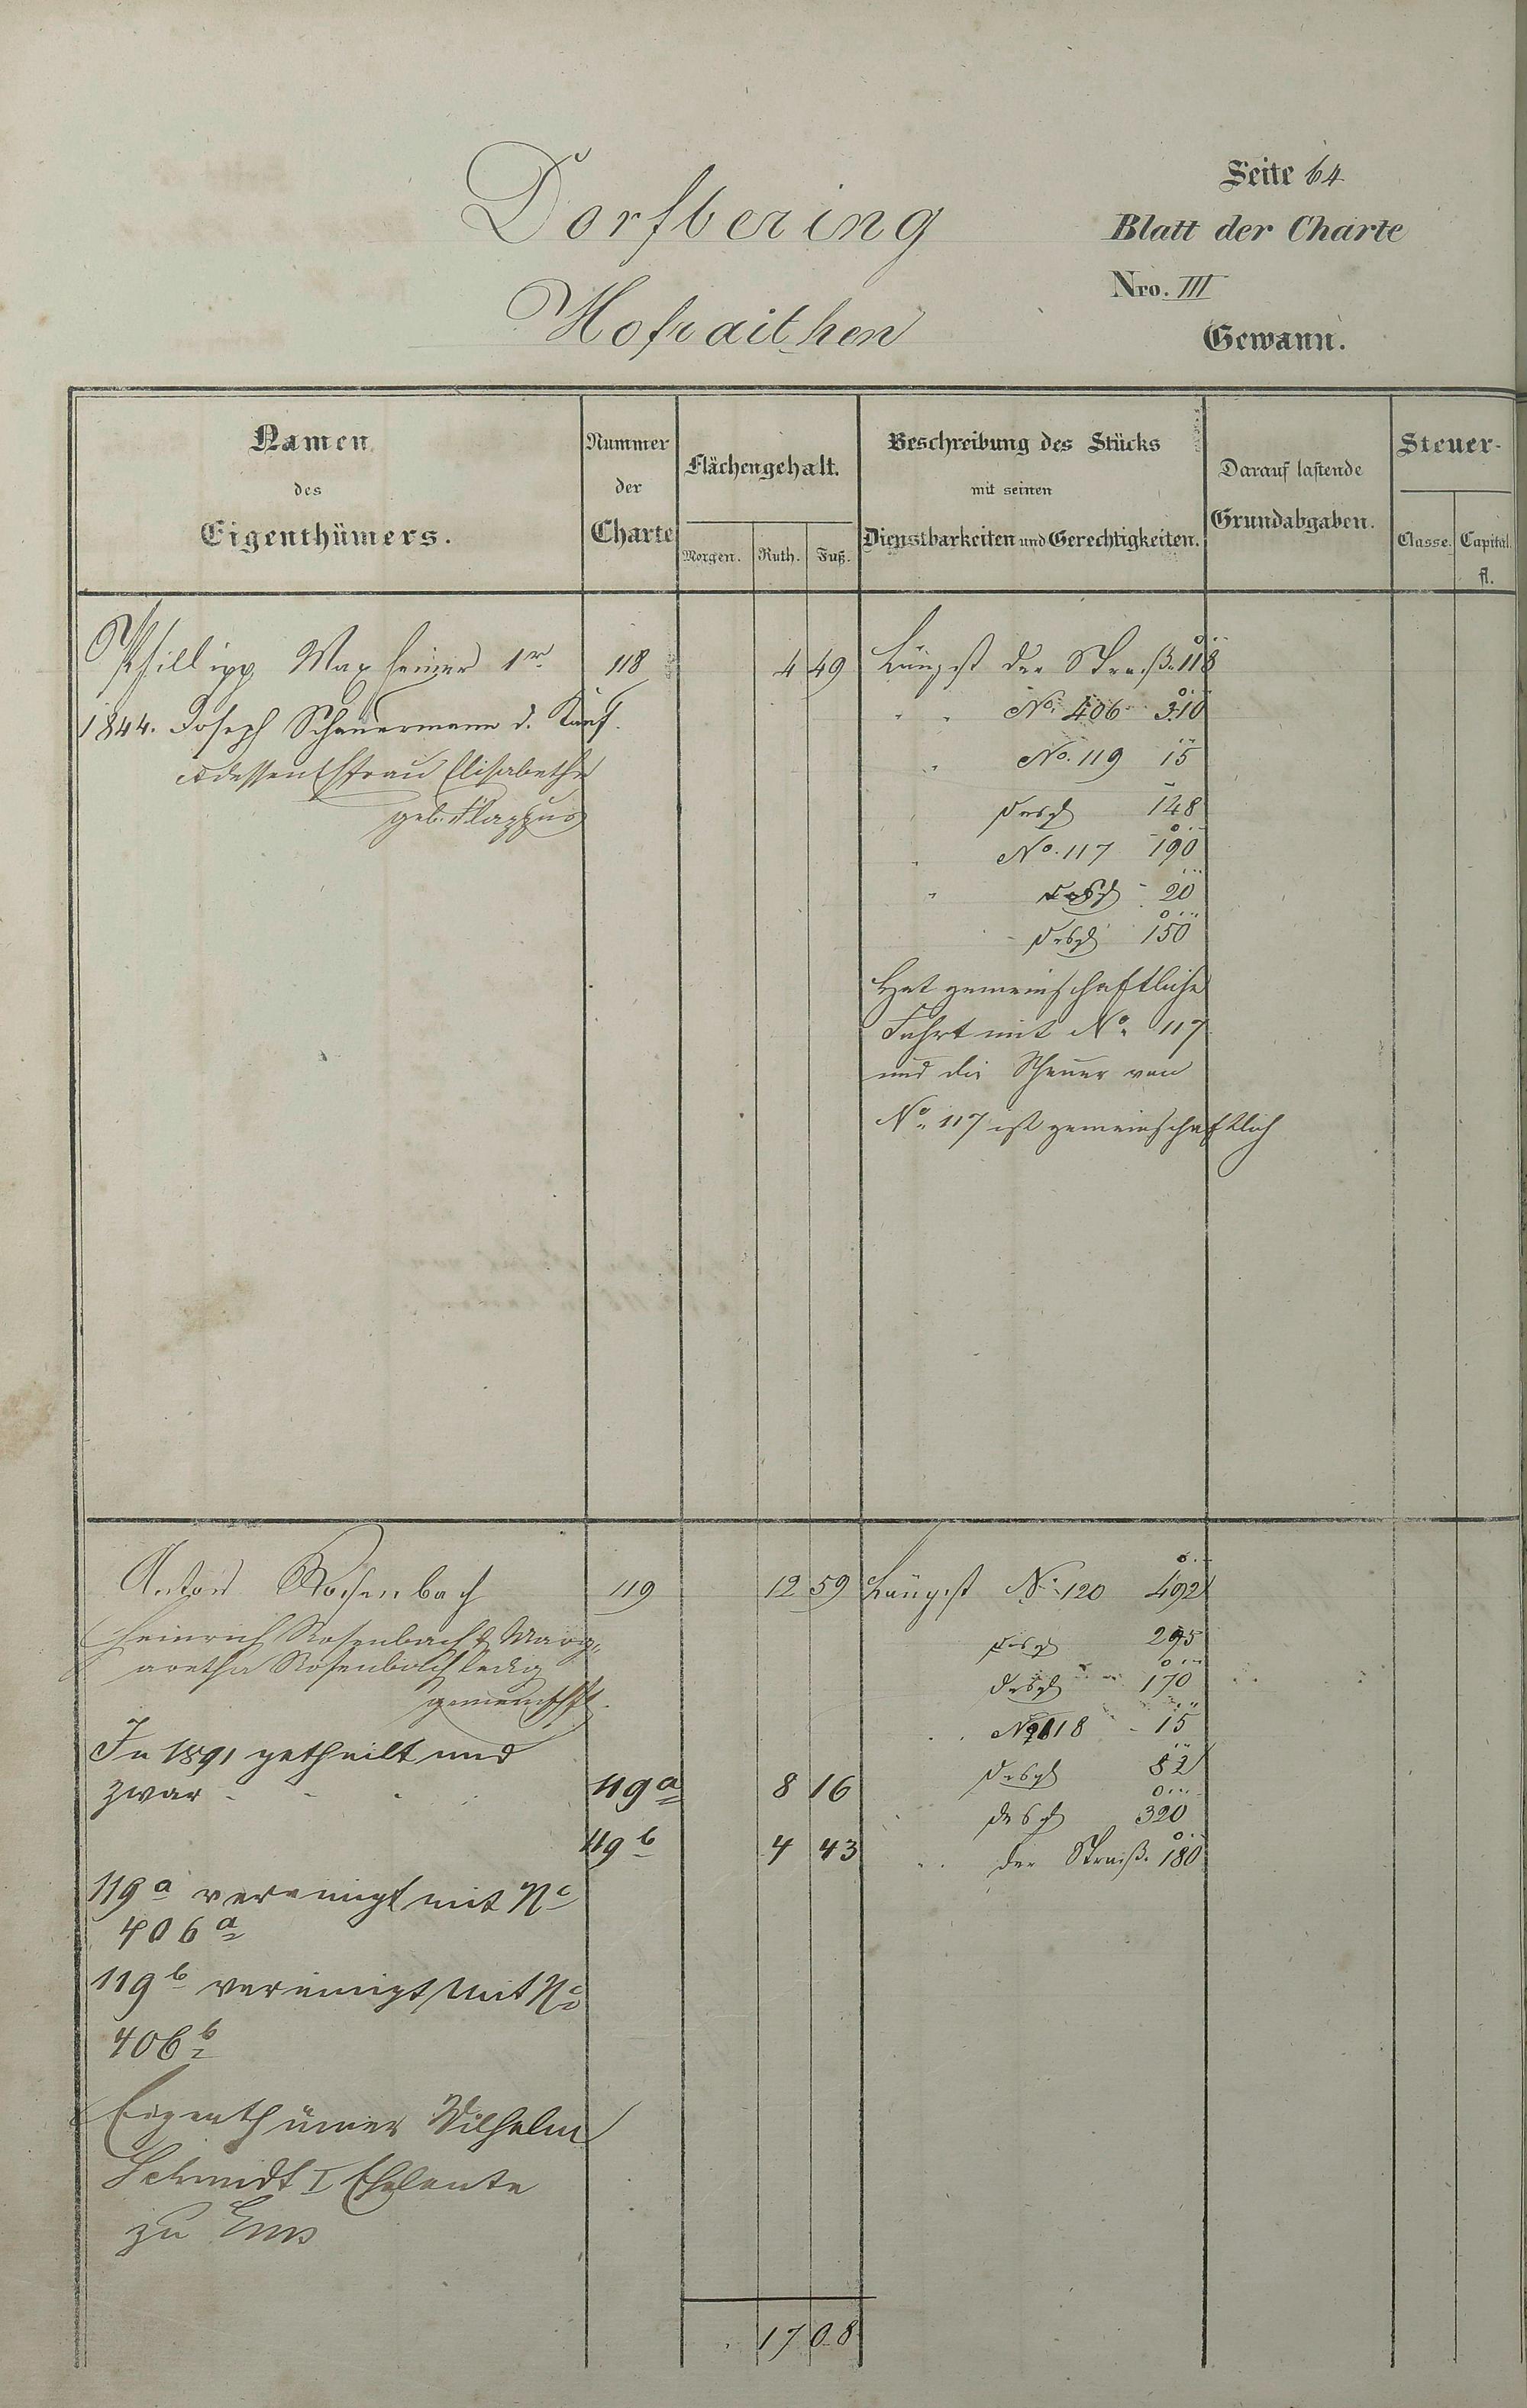 Seite 64
Dorfbering
Blatt der Charte
Nro. III
Hofraithen
Gewann.
Namen des Eigenthümers.
Nummer der Charte
Flächengehalt.
Morgen. Ruth. Fuß.
Beschreibung des Stücks mit seinen Dienstbarkeiten und Gerechtigkeiten.
Darauf lastende Grundabgaben.
Steuer-
Classe. Capital. fl.
Phillipp Maxheimer 1r 118 4 49 Längst der Straße 118
1844. Joseph Scheuermann d. Kauf. " " No. 406 310
& dessen Ehfrau Elisabetha " No. 119 15
geb. " desgl 148
" No. 117 190
" desgl 20
desgl 150
Hat gemeinschaftliche
Fahrt mit No. 117
und die Scheuer von
No. 117 ist gemeinschaftlich
Anton Rosenbach 119 12 59 Längst No. 120 492
Heinrich Rosenbach & Marg-
aretha Rosenbach ledig
gemeinschftl.
desgl 295
desgl 170
118 15
In 1891 getheilt und
zwar - - - 119a 8 16 desgl 82
desgl 320
119b 4 43 " der Straße 180
119a vereinigt mit No
406a
119b vereinigt mit No
406b
Eigenthümer Wilhelm
Schmidt I Eheleute
zu Ems
17 08